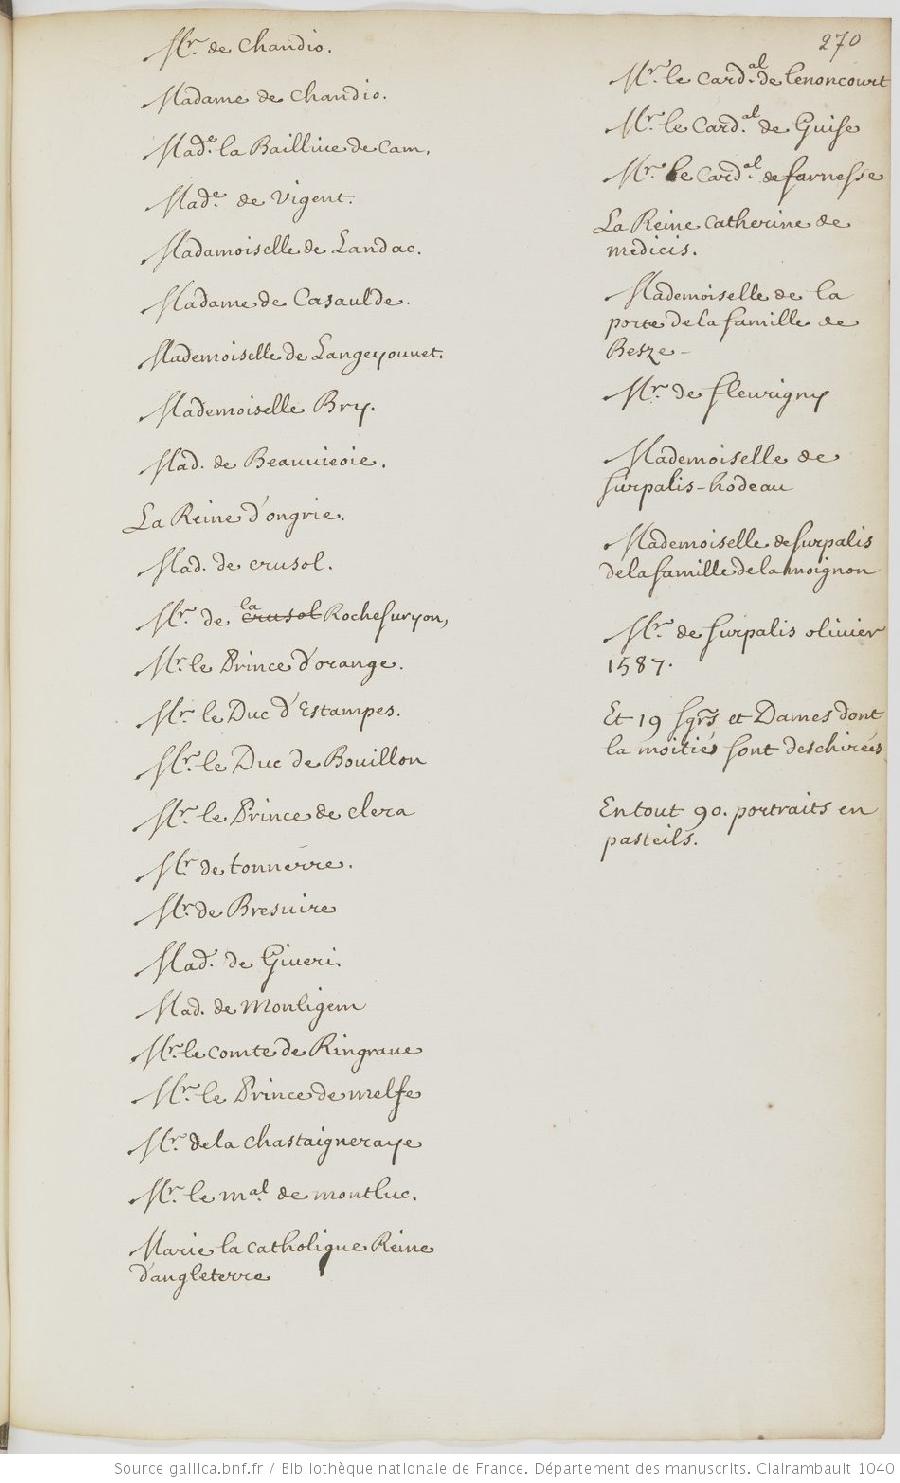 270
Mr. de Chandio.
Madame de Chandio.
Made. la Baillive de Cam.
Made. de Vigent.
Madamoiselle de Landac.
Madame de Casaulde.
Mademoiselle de Langeyouuet.
Mademoiselle Bry.
Mad. de Beauuieoie.
La Reine d'ongrie.
Mad. de crusol.
Mr. de la crusol Rochesuryon,
Mr. le Prince d'orange.
Mr. le Duc d'Estampes.
Mr. le Duc de Bouillon
Mr. le Prince de clera
Mr. de tonnerre.
Mr. de Bresuire
Mad. de Giueri.
Mad. de Montigem
Mr. le comte de Ringraue
Mr. le Prince de melfe
Mr. de la chastaigneraye
Mr. le mal. de montluc.
Marie la catholique Reine
d'angleterre
Mr. le Card.al de Lenoncourt
Mr. le Card.al de Guise
Mr. le Card.al de farnesse
La Reine Catherine de
medicis.
Mademoiselle de la
porte de la famille de
Besze -
Mr. de fleurigny
Mademoiselle de
surpalis-hodeau
Mademoiselle de surpalis
de la famille de lamoignon
Mr. de surpalis olivier
1587.
Et 19 sgrs et Dames dont
la moitiés sont deschirées
En tout 90. portraits en
pasteils.
Source gallica.bnf.fr / Bibliothèque nationale de France. Département des manuscrits. Clairambault 1040